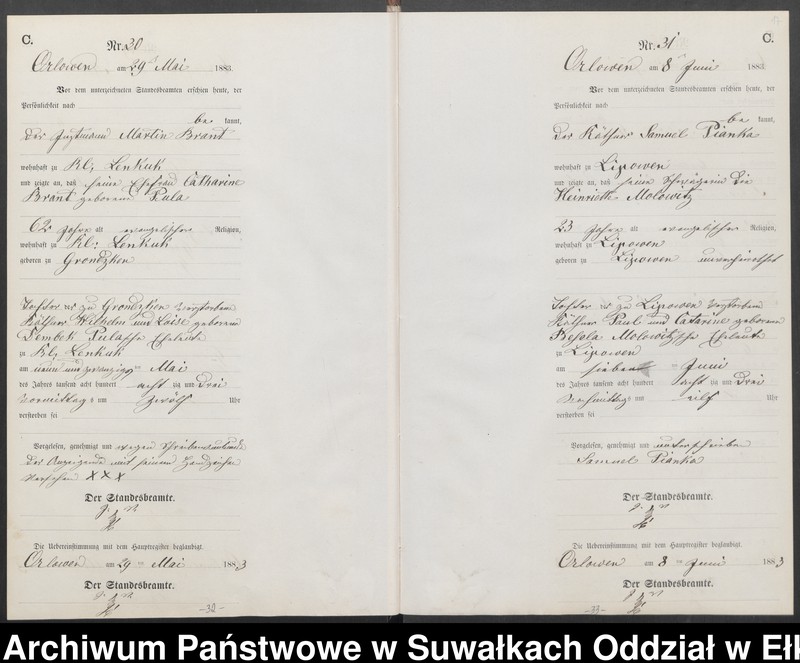 C.
Nr. 30
Orlowen am 29 Mai 1883.
Vor dem unterzeichneten Standesbeamten erschien heute, der
Persönlichkeit nach
be kannt,
der Instmann Martin Brant
wohnhaft zu Kl: Lenkuk
und zeigte an, daß seine Ehefrau Catharine
Brant geborene Pula
62 Jahre alt evangelischer Religion,
wohnhaft zu Kl: Lenkuk
geboren zu Grondzken
Tochter der zu Grondzken verstorbenen
Käthner Wilhelm und Loise geborene
Sembek Pulasche Eheleute
zu Kl: Lenkuk
am neun und zwanzigsten Mai
des Jahres tausend acht hundert acht zig und drei
Vormittags um zwölf Uhr
verstorben sei
Vorgelesen, genehmigt und wegen Schreibensunkunde
der Anzeigende mit seinem Handzeichen
versehen XXX
Der Standesbeamte.
Die Uebereinstimmung mit dem Hauptregister beglaubigt.
Orlowen am 29 ten Mai 1883
Der Standesbeamte.
-32-
Nr. 31
C.
Orlowen am 8 Juni 1883.
Vor dem unterzeichneten Standesbeamten erschien heute, der
Persönlichkeit nach
be kannt,
der Käthner Samuel Pianka
wohnhaft zu Lipowen
und zeigte an, daß seine Schwägerin die
Heinriette Molowitz
23 Jahre alt evangelischer Religion,
wohnhaft zu Lipowen
geboren zu Lipowen unverheirathet
Tochter der zu Lipowen verstorbenen
Käthner Paul und Catarine geborene
Molowitzsche Eheleute
zu Lipowen
am sieben ten Juni
des Jahres tausend acht hundert acht zig und drei
Nachmittags um eilf Uhr
verstorben sei
Vorgelesen, genehmigt und unterschrieben
Samuel Pianka
Der Standesbeamte.
Die Uebereinstimmung mit dem Hauptregister beglaubigt.
Orlowen am 8 ten Juni 1883
Der Standesbeamte.
-33-
Archiwum Państwowe w Suwałkach Oddział w Eł